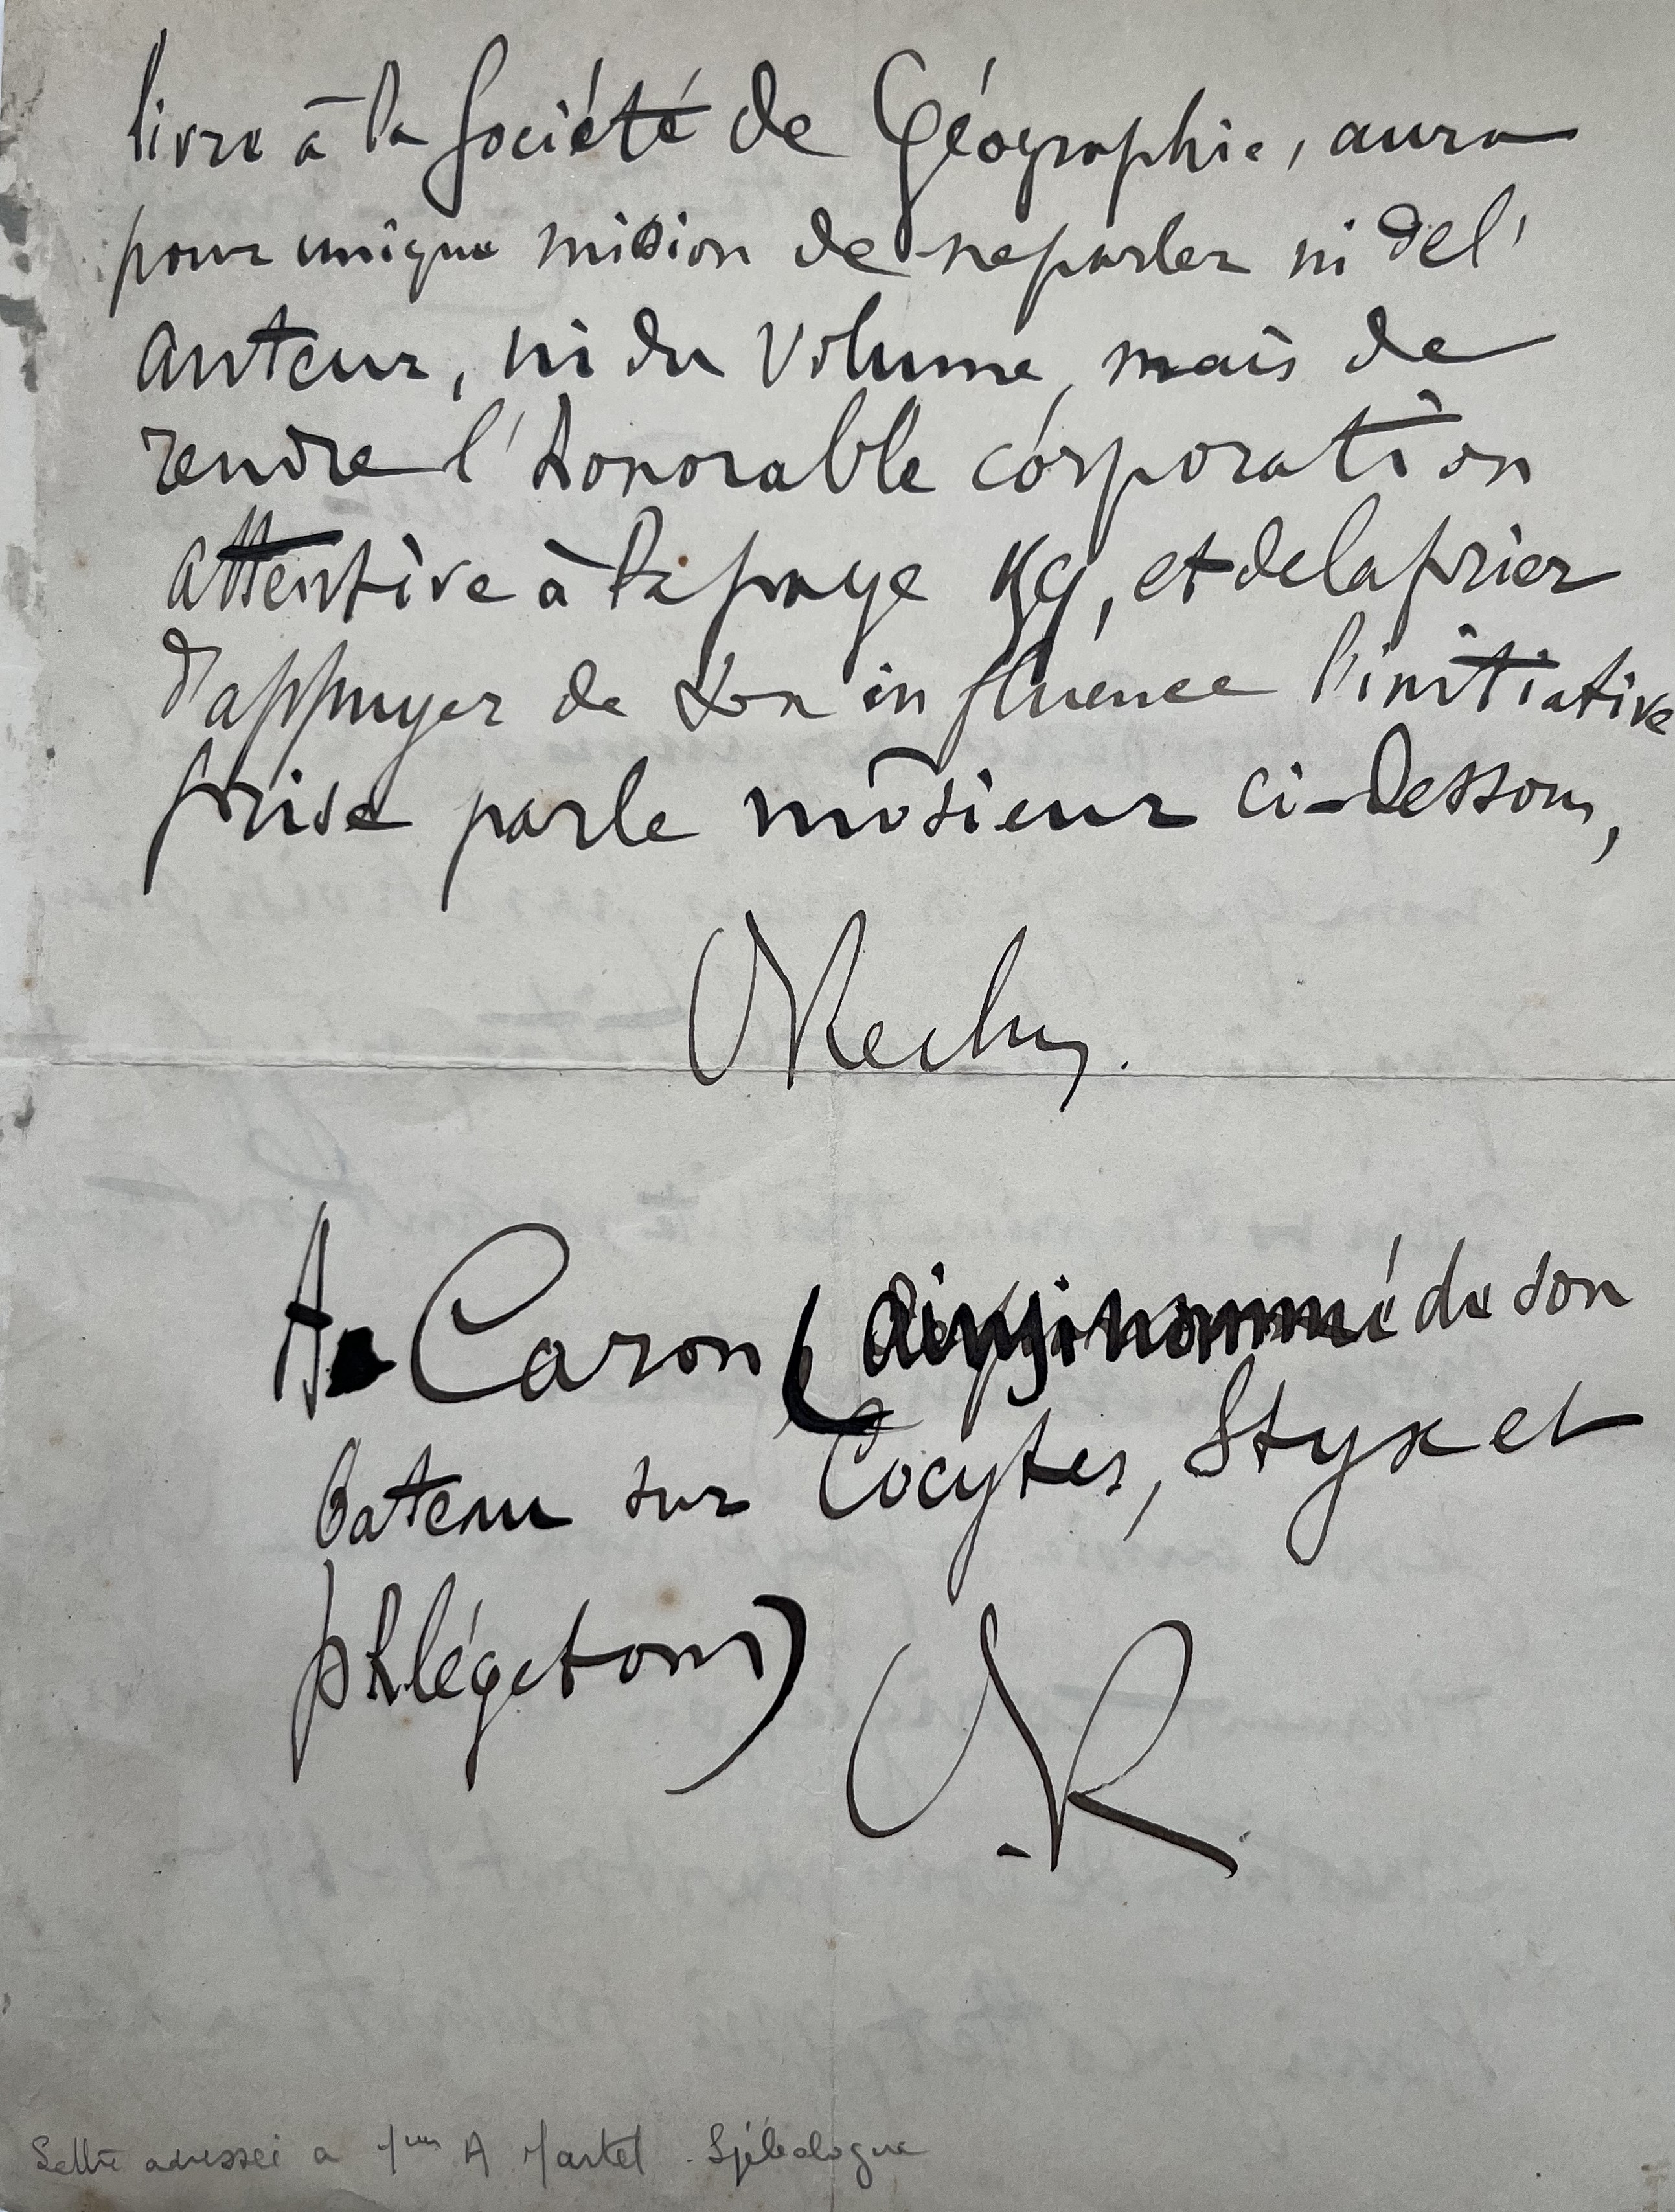 livre à la Société de Géographie, aura
pour unique mission de ne parler ni de l'
auteur, ni du volume, mais de
rendre l'honorable corporation
attentive à la page, et de la prier
d'appuyer de son influence l'initiative
prise par le mosieur ci-dessous,
O Reclus.
A Caron (ainsi nommé de son
bateau sur Cocytes, Styx et
phlégetons)
O.R.
Lettre adressée a A Martel. Spéléologue